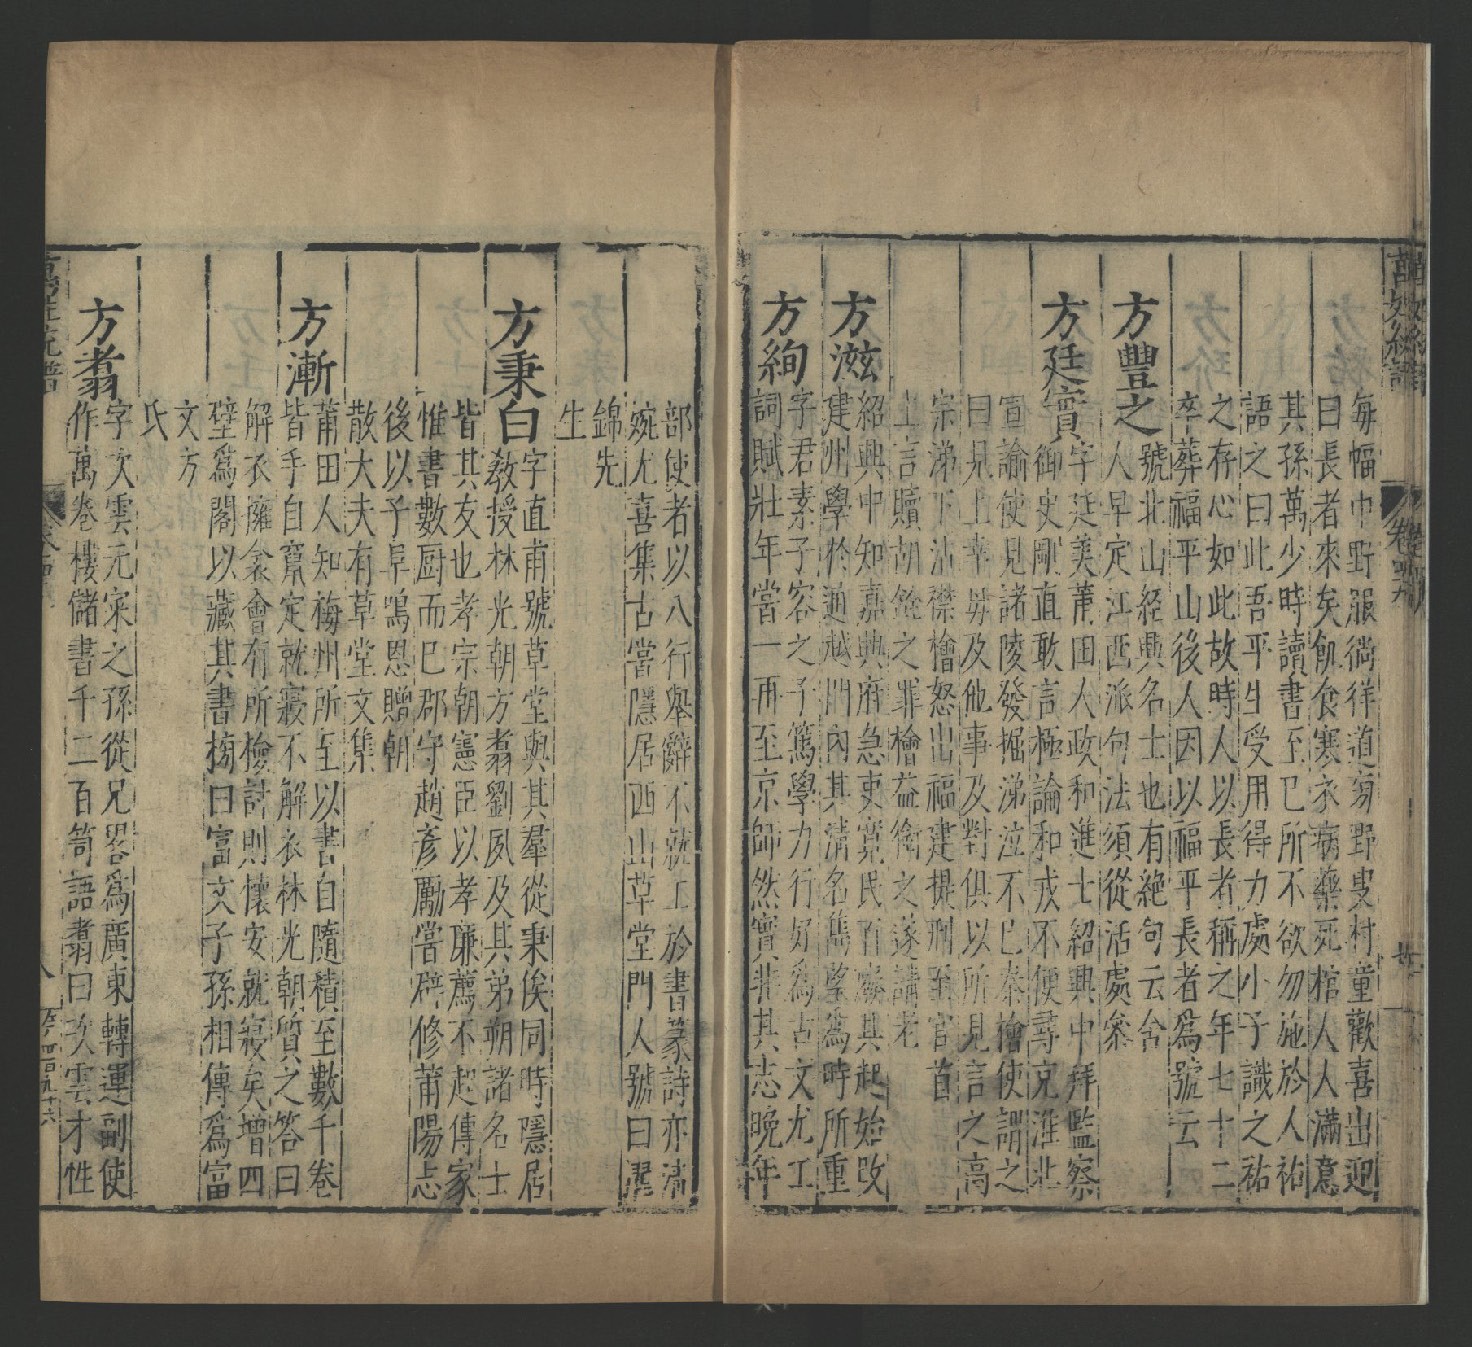 每幅巾野服徜徉道旁野叟村童歡喜出迎
曰長者來矣飢食寒衣病藥死棺人人滿意
其孫萬少時讀書至己所不欲勿施於人祐
語之曰此吾平生受用得力處小子識之祐
之存心如此故時人以長者稱之年七十二
卒葬福平山後人因以福平長者爲號云
方豐之
號北山經興名士也有絶句云舍
人早定江西派句法須從活處參
方廷實
字廷美莆田人政和進士紹興中拜監察
御史剛直敢言極論和戎不便尋克淮北
宣諭使見諸陵發掘涕泣不已秦檜使謂之
曰見上幸毋及他事及對俱以所見言之高
宗涕下沾襟檜怒出福建提刑
上言贖胡銓之罪檜益銜之遂請老
方滋
紹興中知嘉興府急吏寬民百廢具起始改
建州學於通越門內其清名雋望爲時所重
方絢
字君素子容之子篤學力行好爲古文尤工
詞賦壯年嘗一再至京師然實非其志晚年
部使者以八行舉辭不就工於書篆詩亦清
婉尤喜集古嘗隱居西山草堂門人號曰濯
錦先
生
方秉白
字直甫號草堂與其羣從秉俟同時隱居
教授林光朝方翥劉夙及其弟朔諸名士
皆其友也孝宗朝憲臣以孝廉薦不起傳家
惟書數厨而巳郡守趙彥勵嘗辟修莆陽志
後以子阜鳴恩贈朝
散大夫有草堂文集
方漸
莆田人知梅州所至以書自隨積至數千卷
皆手自竄定就寢不解衣林光朝質之答曰
解衣擁衾會有所檢討則懷安就寢矣增四
壁爲閣以藏其書榜曰富文子孫相傳爲富
文方
氏
方翥
字次雲元寀之孫從兄畧爲廣東轉運副使
作萬卷樓儲書千二百笥語翥曰次雲才性